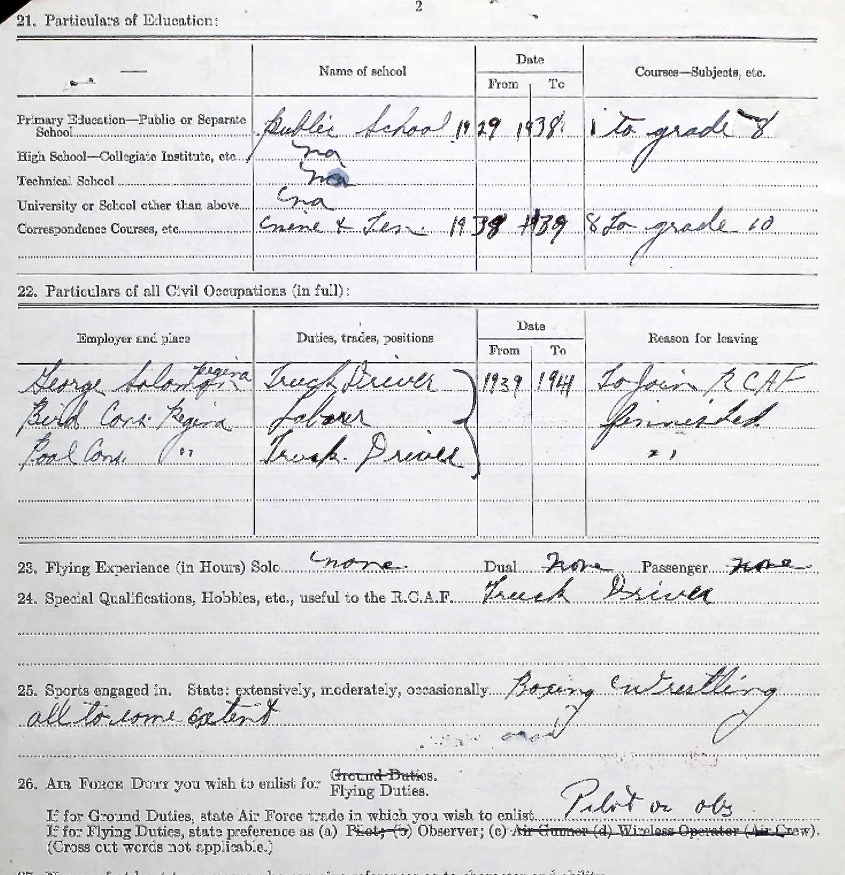 2
21. Particulars of Education:
Name of school
Date
From To
Courses—Subjects, etc.
Primary Education—Public or Separate
School Public School 1929 1938 1 to grade 8
High School—Collegiate Institute, etc. na
Technical School na
University or School other than above na
Correspondence Courses, etc. nine & Ten. 1938 1939 8 To grade 10
22. Particulars of all Civil Occupations (in full):
Employer and place Duties, trades, positions
Date
From To
Reason for leaving
George Regina Truck Driver 1939 1941 To Join RCAF
Bird Cons. Regina Laborer finnished
Pool Cons. " Truck Driver "
23. Flying Experience (in Hours) Solo none Dual none Passenger none
24. Special Qualifications, Hobbies, etc., useful to the R.C.A.F. Truck Driver
25. Sports engaged in. State: extensively, moderately, occasionally Boxing Wrestling
all to some extent
26. AIR FORCE DUTY you wish to enlist for Ground Duties.
Flying Duties.
If for Ground Duties, state Air Force trade in which you wish to enlist Pilot or obs
If for Flying Duties, state preference as (a) Pilot; (b) Observer; (c) Air Gunner (d) Wireless Operator (Air Crew).
(Cross out words not applicable.)